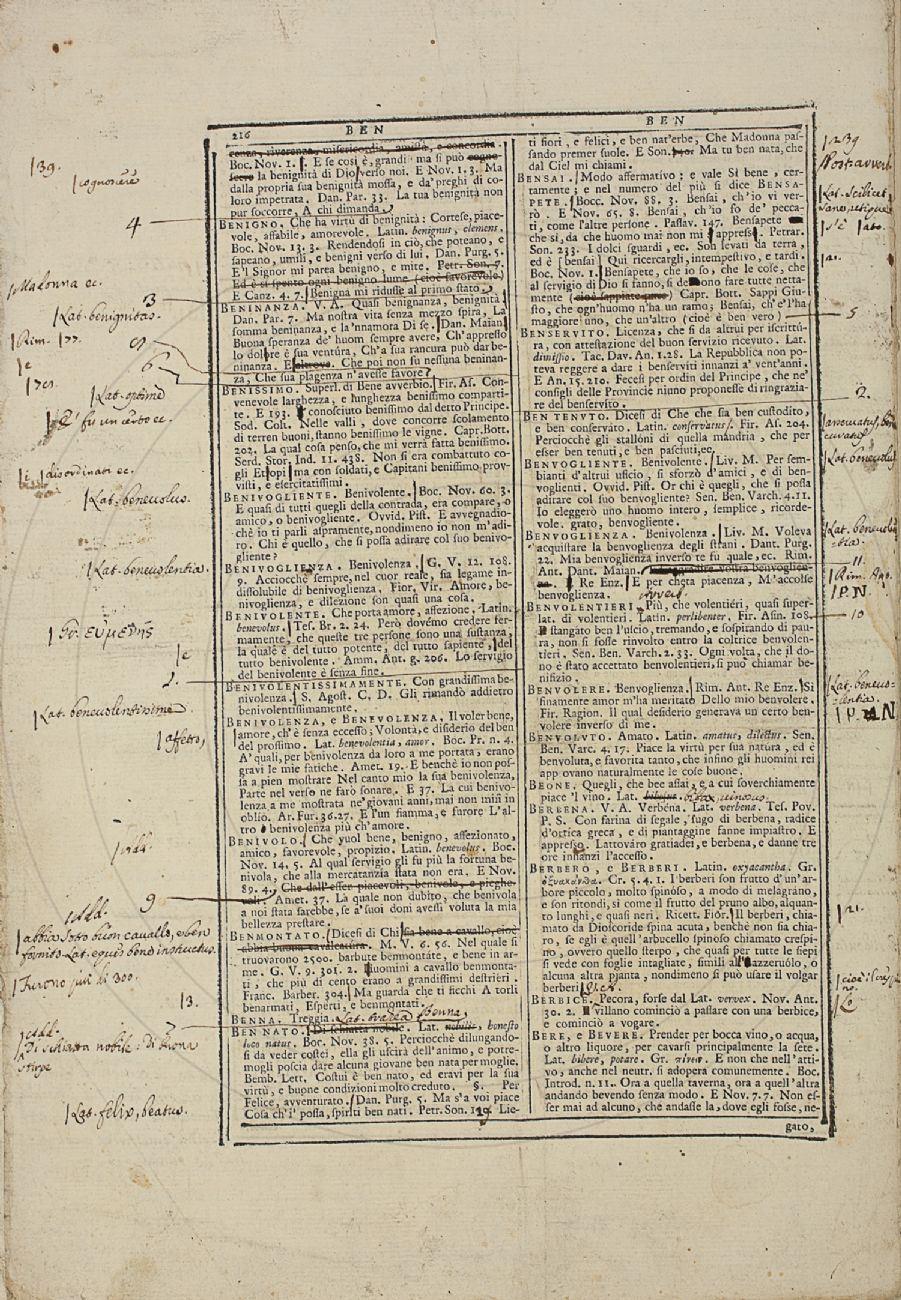 216 BEN
BEN
cenza, riverenza, misericordia, amistà, e concordia.
Boc. Nov. 1. E se così è, grandi ma si può
la benignità di Dio verso noi. E Nov. 1. 3. Ma
dalla propria sua benignità mossa, e da' preghi di co-
loro impetrata. Dan. Par. 33. La tua benignità non
pur soccorre, A chi dimanda.
BENIGNO. Che ha virtù di benignità: Cortese, piace-
vole, affabile, amorevole. Latin. benignus, clemens.
Boc. Nov. 13. 3. Rendendosi in ciò, che poteano, e
sapeano, umili, e benigni verso di lui. Dan. Purg. 5.
E'l Signor mi parea benigno, e mite. Petr. Son. 7.
Ed è sì spento ogni benigno lume (cioè favorevole)
E Canz. 4. 7. Benigna mi ridusse al primo stato.
BENINANZA. V. A. Quasi benignanza, benignità
Dan. Par. 7. Ma nostra vita senza mezzo spira, La
somma beninanza, e la 'nnamora Di se. Dan. Maian.
Buona speranza de' huom sempre avere, Ch'appresso
lo dolore è sua ventura, Ch'a sua rancura può dar be-
ninanza. E Che poi non fu nessuna beninan-
za, Che sua plagenza n'avesse favore?
BENISSIMO. Superl. di Bene avverbio. Fir. As. Con-
venevole larghezza, e lunghezza benissimo comparti-
te. E 193. conosciuto benissimo dal detto Principe.
Sod. Colt. Nelle valli, dove corrono scolamento
di terren buoni, stanno benissimo le vigne. Capr. Bott.
202. La qual cosa penso, che mi verrà fatta benissimo.
Serd. Stor. Ind. 11. 438. Non si era combattuto co-
gli Etiopi ma con soldati, e Capitani benissimo prov-
visti, e esercitatissimi.
BENIVOGLIENTE. Benivolente. Boc. Nov. 60. 3.
E quasi di tutti quegli della contrada, era compare, o
amico, o benivogliente. Ovvid. Pist. E avvegnadio-
chè io ti parli aspramente, nondimeno io non m'adi-
ro. Chi è quello, che si possa adirare col suo benivo-
gliente?
BENIVOGLIENZA. Benivolenza. G. V. 12. 108.
9. Acciocchè sempre, nel cuor reale, sia legame in-
dissolubile di benivoglienza. Fior. Vir. Amore, be-
nivoglienza, e dilezion son quasi una cosa.
BENIVOLENTE. Che porta amore, affezione. Latin.
benevolus. Tes. Br. 2. 24. Però dovémo credere fer-
mamente, che queste tre persone sono una sustanza,
la quale è del tutto potente, del tutto sapiente, del
tutto benivolente. Amm. Ant. g. 206. Lo servigio
del benivolente è senza fine.
BENIVOLENTISSIMAMENTE. Con grandissima be-
nivolenza. S. Agost. C. D. Gli rimandò addietro
benivolentissimamente.
BENIVOLENZA, e BENEVOLENZA. Il voler bene,
amore, ch'è senza eccesso; Volontà, e disiderio del ben
del prossimo. Lat. benevolentia, amor. Boc. Pr. n. 4.
A' quali, per benivolenza da loro a me portata, erano
gravi le mie fatiche. Amet. 19. E benchè io non pos-
sa a pien mostrare Nel canto mio la sua benivolenza,
Parte nel verso ne farò sonare. E 37. La cui benivo-
lenza a me mostrata ne' giovani anni, mai non misi in
oblio. Ar. Fur. 36. 27. E l'un fiamma, e furore L'al-
tro benivolenza più ch'amore.
BENIVOLO. Che vuol bene, benigno, affezionato,
amico, favorevole, propizio. Latin. benevolus. Boc.
Nov. 14. 5. Al qual servigio gli fu più la fortuna be-
nivola, che alla mercatanzia stata non era. E Nov.
89. 4. Che dall'esser piacevoli, benivole, e pieghe-
voli. Amet. 37. La quale non dubito, che benivola
a noi stata sarebbe, se a' suoi doni avessi voluta la mia
bellezza prestare.
BENMONTATO. Dicesi di Chi sia bene a cavallo, cioè
abbia buona cavalcatura. M. V. 6. 56. Nel quale si
truovarono 2500. barbute benmontate, e bene in ar-
me. G. V. 9. 301. 2. huomini a cavallo benmonta-
ti, che più di cento erano a grandissimi destrieri.
Franc. Barber. 304. Ma guarda che ti ficchi A torli
benarmati, Esperti, e benmontati.
BENNA. Treggia.
BENNATO. Di schiatta nobile. Lat. nobilis, honesto
loco natus. Boc. Nov. 38. 5. Perciocchè dilungando-
si da veder costei, ella gli uscirà dell'animo, e potre-
mogli poscia dare alcuna giovane ben nata per moglie.
Bemb. Lett. Costui è ben nato, ed eravi per la sua
virtù, e buone condizioni molto creduto. §. Per
Felice, avventurato. Dan. Purg. 5. Ma s'a voi piace
Cosa ch'i' possa, spiriti ben nati. Petr. Son. 129. Lie-
ti fiori, e felici, e ben nat'erbe, Che Madonna pas-
sando premer suole. E Son. Ma tu ben nata, che
dal Ciel mi chiami.
BENSAI. Modo affermativo; e vale Sì bene, cer-
tamente; e nel numero del più si dice BENSA-
PETE. Bocc. Nov. 88. 3. Bensai, ch'io vi ver-
rò. E Nov. 65. 8. Bensai, ch'io so de' pecca-
ti, come l'altre persone. Passav. 147. Bensapete
che sì, da che huomo mai non mi appressò. Petrar.
Son. 233. I dolci sguardi, ec. Son levati da terra,
ed è (bensai) Qui ricercargli, intempestivo, e tardi.
Boc. Nov. 1. Bensapete, che io so, che le cose, che
al servigio di Dio si fanno, si deono fare tutte netta-
mente (cioè sappiate pure) Capr. Bott. Sappi Giu-
sto, che ogn'huomo n'ha un ramo; Bensai, ch'e'l'ha
maggiore uno, che un'altro (cioè è ben vero)
BENSERVITO. Licenza, che si da altrui per iscrittu-
ra, con attestazione del buon servizio ricevuto. Lat.
dimissio. Tac. Dav. An. 1. 28. La Repubblica non po-
teva reggere a dare i benserviti innanzi a' vent'anni.
E An. 15. 210. Fecesi per ordin del Principe, che ne'
consigli delle Provincie niuno proponesse di ringrazia-
re del benservito.
BENTENUTO. Dicesi di Che che sia ben custodito,
e ben conservato. Latin. conservatus. Fir. As. 204.
Perciocchè gli stalloni di quella mandria, che per
esser ben tenuti, e ben pasciuti, ec.
BENVOGLIENTE. Benivolente. Liv. M. Per sem-
bianti d'altrui uficio, si sforzò d'amici, e di ben-
voglienti. Ovvid. Pist. Or chi è quegli, che si possa
adirare col suo benvogliente? Sen. Ben. Varch. 4. 11.
Io eleggerò uno huomo intero, semplice, ricorde-
vole, grato, benvogliente.
BENVOGLIENZA. Benivolenza. Liv. M. Voleva
acquistare la benvoglienza degli strani. Dant. Purg.
22. Mia benvoglienza inverso te fu quale, ec. Rim.
Ant. Dant. Maian.
Re Enz. E per cheta piacenza, M'accolse
benvoglienza.
BENVOLENTIERI. Più, che volentiéri, quasi super-
lat. di volentieri. Latin. perlibenter. Fir. Asin. 108.
stangato ben l'uscio, tremando, e sospirando di pau-
ra, non si fosse rinvolto entro la coltrice benvolen-
tieri. Sen. Ben. Varch. 2. 33. Ogni volta, che il do-
no è stato accettato benvolentieri, si può chiamar be-
nifizio.
BENVOLERE. Benvoglienza. Rim. Ant. Re Enz. Sì
finamente amor m'ha meritato Dello mio benvolere.
Fir. Ragion. Il qual desiderio generava un certo ben-
volere inverso di me.
BENVOLUTO. Amato. Latin. amatus, dilectus. Sen.
Ben. Varc. 4. 17. Piace la virtù per sua natura, ed è
benvoluta, e favorita tanto, che infino gli huomini rei
approvano naturalmente le cose buone.
BEONE. Quegli, che bee assai, e a cui soverchiamente
piace 'l vino. Lat.
BERBENA. V. A. Verbéna. Lat. verbena. Tes. Pov.
P. S. Con farina di segale, sugo di berbena, radice
d'ortica greca, e di piantaggine fanne impiastro. E
appresso. Lattováro gratiadei, e berbena, e danne tre
ore innanzi l'accesso.
BERBERO, e BERBERI. Latin. oxyacantha. Gr.
ὀξυακάνθα. Cr. 5. 4. 1. I berberi son frutto d'un'ar-
bore piccolo, molto spinóso, a modo di melagráno,
e son ritondi, sì come il frutto del pruno albo, alquan-
to lunghi, e quasi neri. Ricett. Fiór. Il berberi, chia-
mato da Dioscoride spina acuta, benchè non sia chia-
ro, se egli è quell'arbucello spinoso chiamato crespi-
no, ovvero quello sterpo, che quasi per tutte le siepi
si vede con foglie intagliate, simili all'azzeruólo, o
alcuna altra pianta, nondimeno si può usare il volgar
berberi
BERBICE. Pecora, forse dal Lat. vervex. Nov. Ant.
30. 2. villano cominciò a passare con una berbice,
e cominciò a vogare.
BERE, e BEVERE. Prender per bocca vino, o acqua,
o altro liquore, per cavarsi principalmente la sete.
Lat. bibere, potare. Gr. πίνειν. E non che nell'atti-
vo, anche nel neutr. si adopera comunemente. Boc.
Introd. n. 11. Ora a quella taverna, ora a quell'altra
andando bevendo senza modo. E Nov. 7. 7. Non es-
ser mai ad alcuno, che andasse la, dove egli fosse, ne-
gato,
139.
cognoscere
4
Madonna ec.
3
Lat. benignitas.
Rim. 77.
e
6
Lat. optimè
fu un certo ec.
disordinati ec.
Lat. benevolus.
Lat. benevolentia.
Gr. εὐμενής
e
Lat. benevolentissimè
affetto,
9
abbia sotto buon cavallo, e ben
fornito Lat. equis bene instructus.
Furono più di 300.
13.
7
Di schiatta nobile: Di buona
stirpe
Lat. felix, beatus.
239
5
2.
Lat. benevolus
Lat. benevolentia.
11
Rim. Ant.
P. N.
10
Lat. benevolentia.
P. N
21.